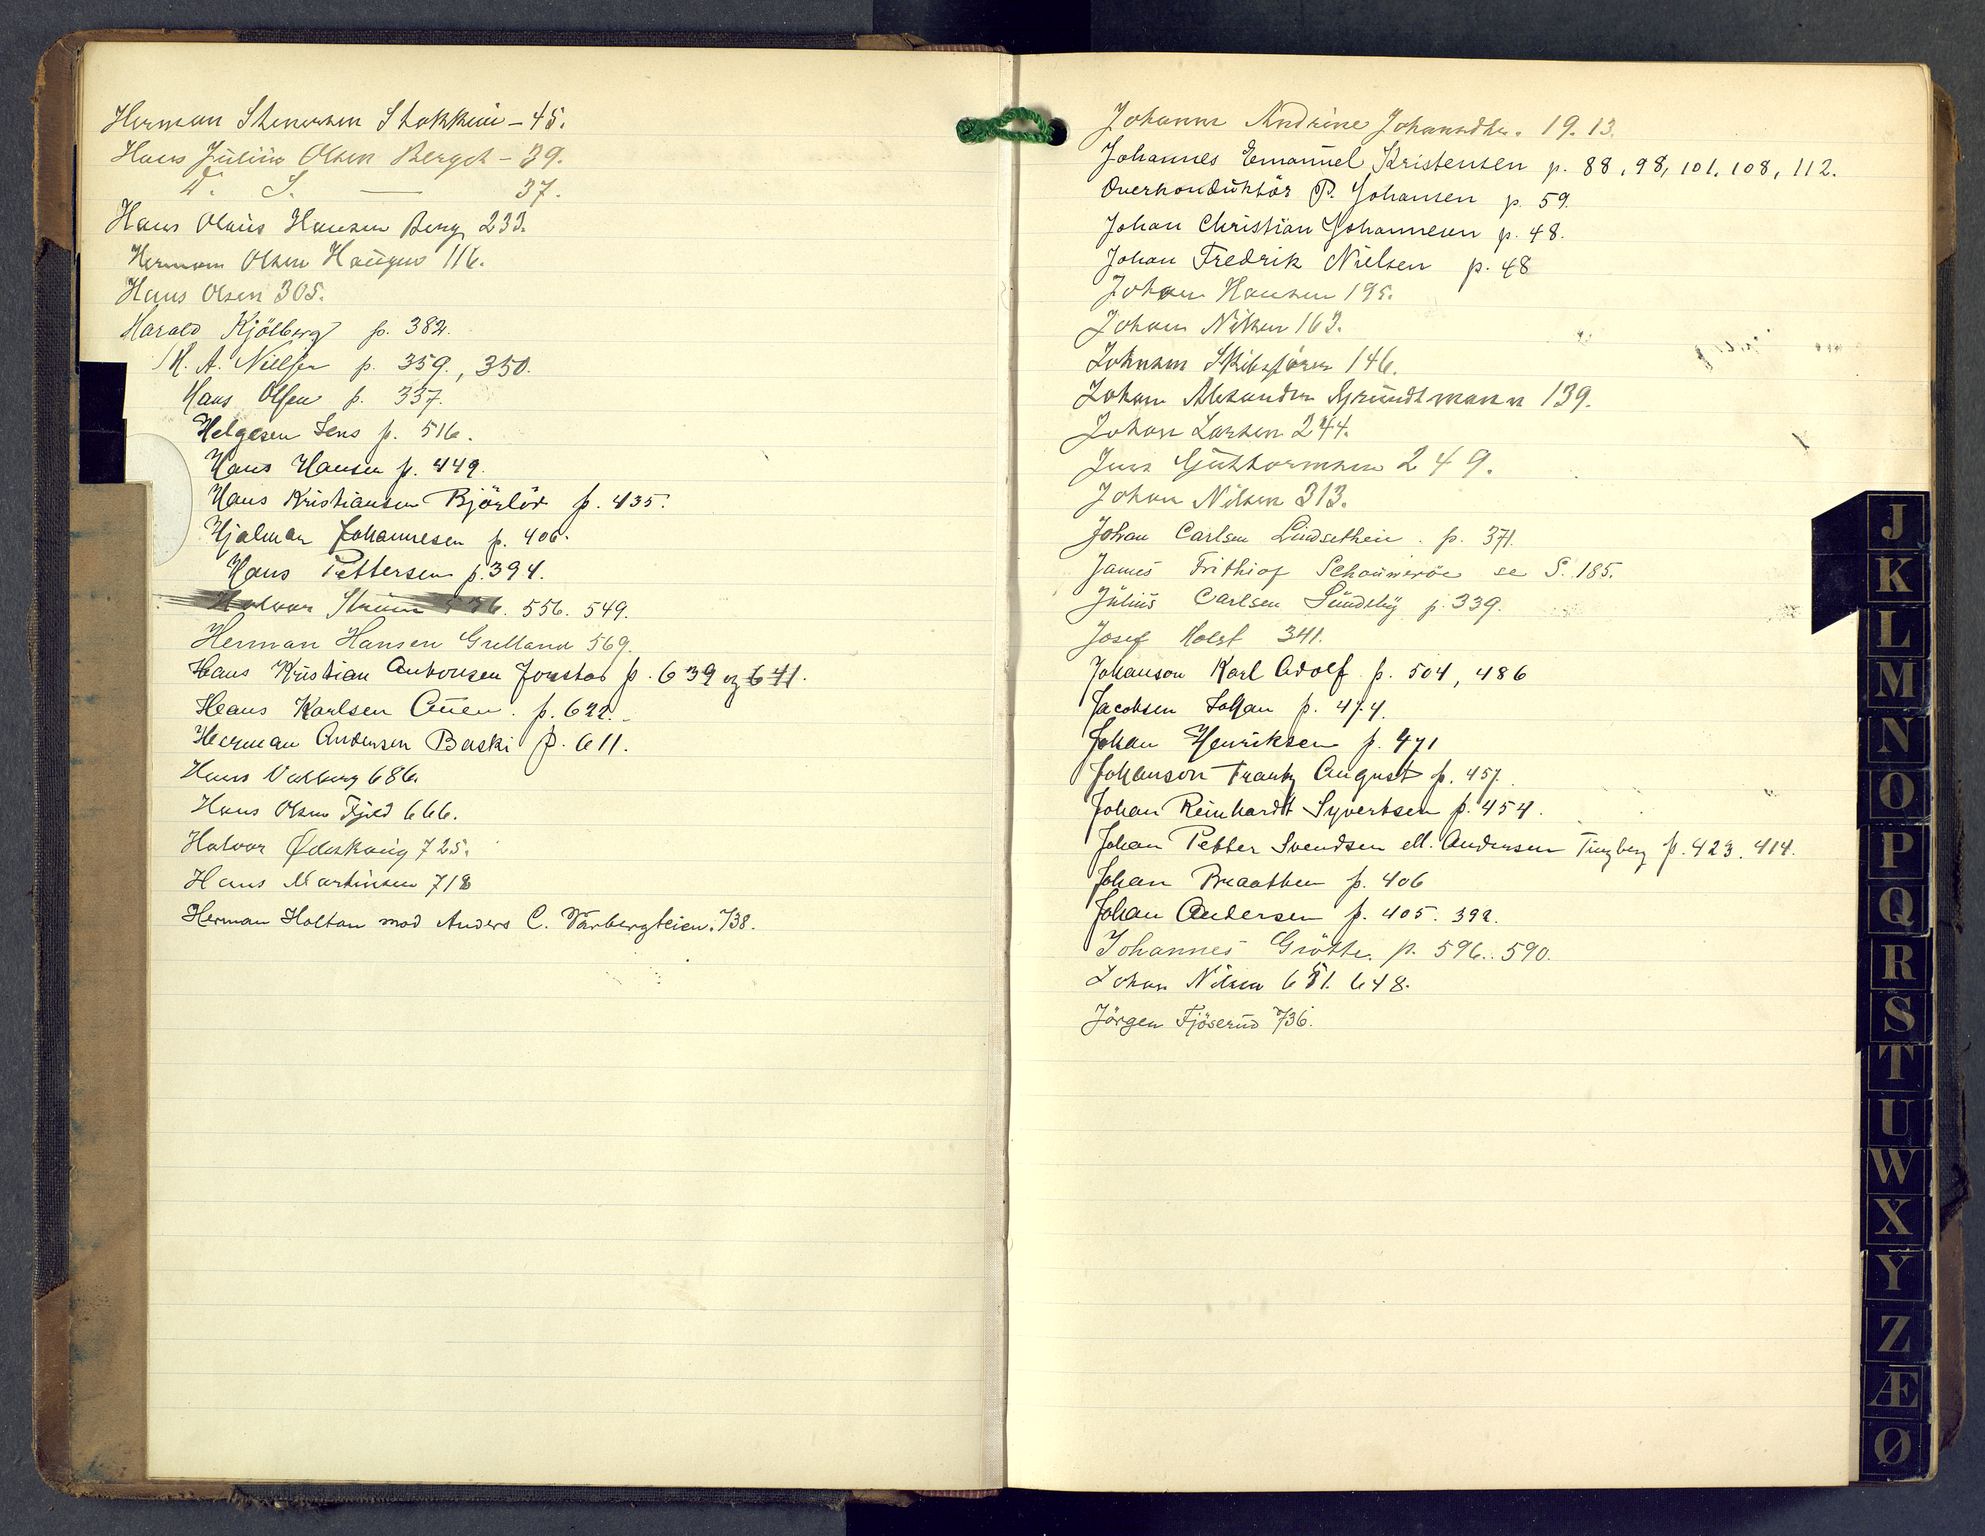 Herman Stenersen Stokkein - 45.
Hans Julius Olsen Berget - 39.
D. S. — 37.
Hans Olaus Hansen Berg 233.
Herman Olsen Haugus 116.
Hans Olsen 305.
Harald Kjölberg p. 382.
H. A. Nielsen p. 359, 350.
Hans Olsen p. 337.
Helgesen Jens p. 516.
Hans Hansen p. 449.
Hans Kristiansen Björlöv p. 435.
Hjalmar Johannesen p. 406.
Hans Pettersen p. 394.
Halvor Strum 576. 556. 549.
Herman Hansen Grelland 569.
Hans Kristian Antonsen p. 639 og 641.
Hans Karlsen Auen. p. 622.
Herman Andersen Baski p. 611.
Hans Valberg 686.
Hans Olsen Fjeld 666.
Halvor Ødeskaug 725.
Hans Martinsen 718
Herman Holtan mod Anders C. Varbergteien. 738.
Johanne Andrine Johannsdtr. 19. 13.
Johannes Emanuel Kristensen p. 88, 98, 101, 108, 112.
Overkonduktör P. Johansen p. 59.
Johan Christian Johannesen p. 48.
Johan Fredrik Nielsen p. 48
Johan Hansen 195.
Johan Nilsen 163.
Johnsen Skibsfører 146.
Johan Alexander Grundtmann 139.
Johan Larsen 244.
Jens Guttormsen 249.
Johan Nilsen 313.
Johan Carlsen Lindsetheie. p. 371.
James Frithiof Schaumeröe se S. 185.
Julius Carlsen Sundbÿ p. 339.
Josef Holst 341.
Johanson Karl Adolf p. 504, 486
Jacobsen Johan p. 474.
Johan Henriksen p. 471
Johanson Frantz August p. 457.
Johan Reinhardt Syvertsen p. 454.
Johan Petter Svendsen ell. Andersen Tingberg p. 423. 414.
Johan Braathen p. 406
Johan Andersen p. 405. 392.
Johannes Grötte. p. 596. 590.
Johan Nilsen 651. 648.
Jörgen Fjöserud 736.
J
K
L
M
N
O
P
Q
R
S
T
U
W
X
Y
Z
Æ
Ø